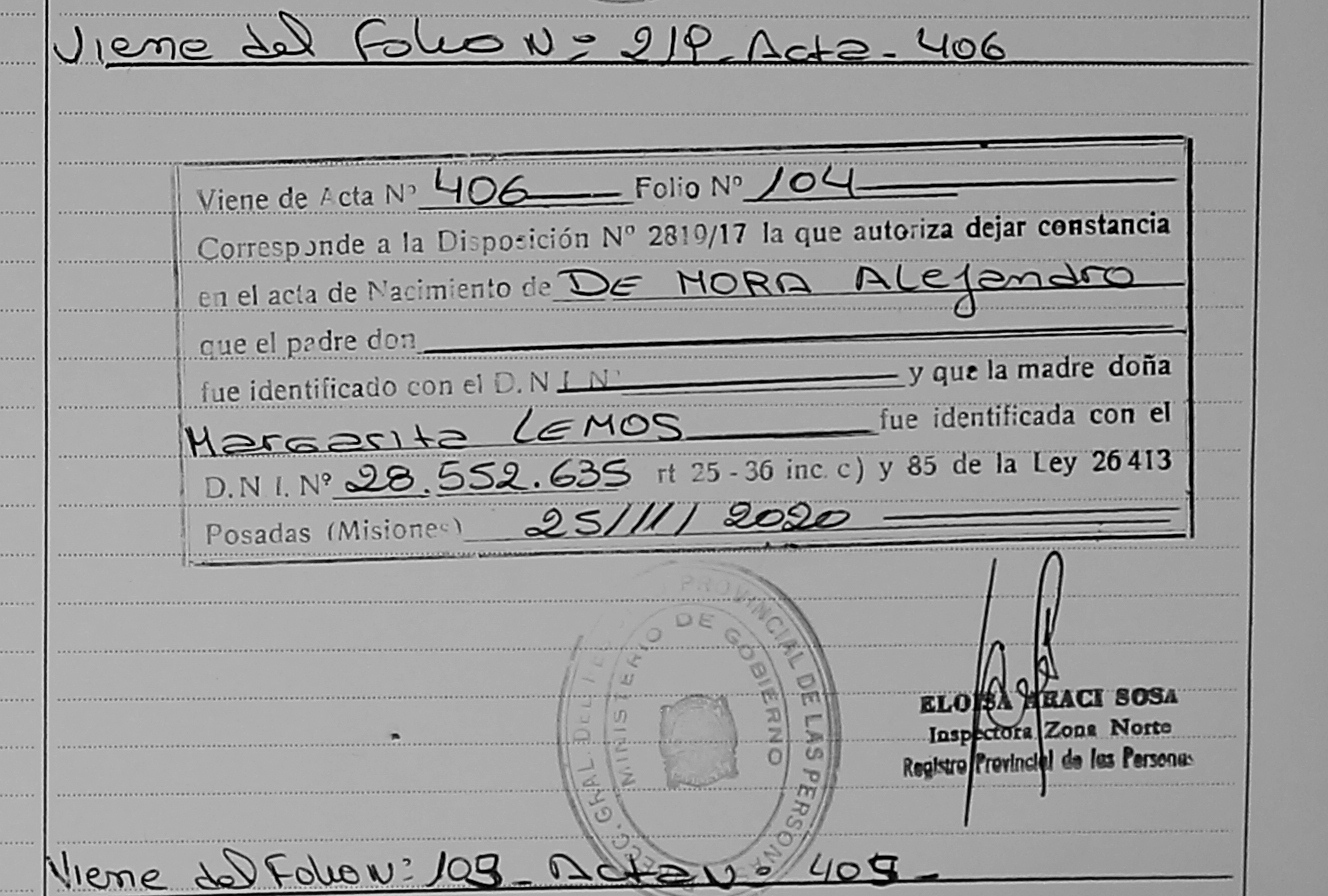 Viene del Folio Nº 219 - Acta - 406
Viene de Acta Nº 406 Folio Nº 104
Corresponde a la Disposición Nº 2819/17 la que autoriza dejar constancia
en el acta de Nacimiento de DE MORA Alejandro
que el padre don
fue identificado con el D.N I Nº y que la madre doña
Margarita LEMOS fue identificada con el
D.N I. Nº 28.552.635 rt 25 - 36 inc. c) y 85 de la Ley 26413
Posadas (Misiones) 25/11/2020
PROVINCIAL DE LAS PERSONAS
MINISTERIO DE GOBIERNO
GRAL. DEL
ELOISA ARACI SOSA
Inspectora Zona Norte
Registro Provincial de las Personas
Viene del Folio Nº 109 - Acta Nº 409 -